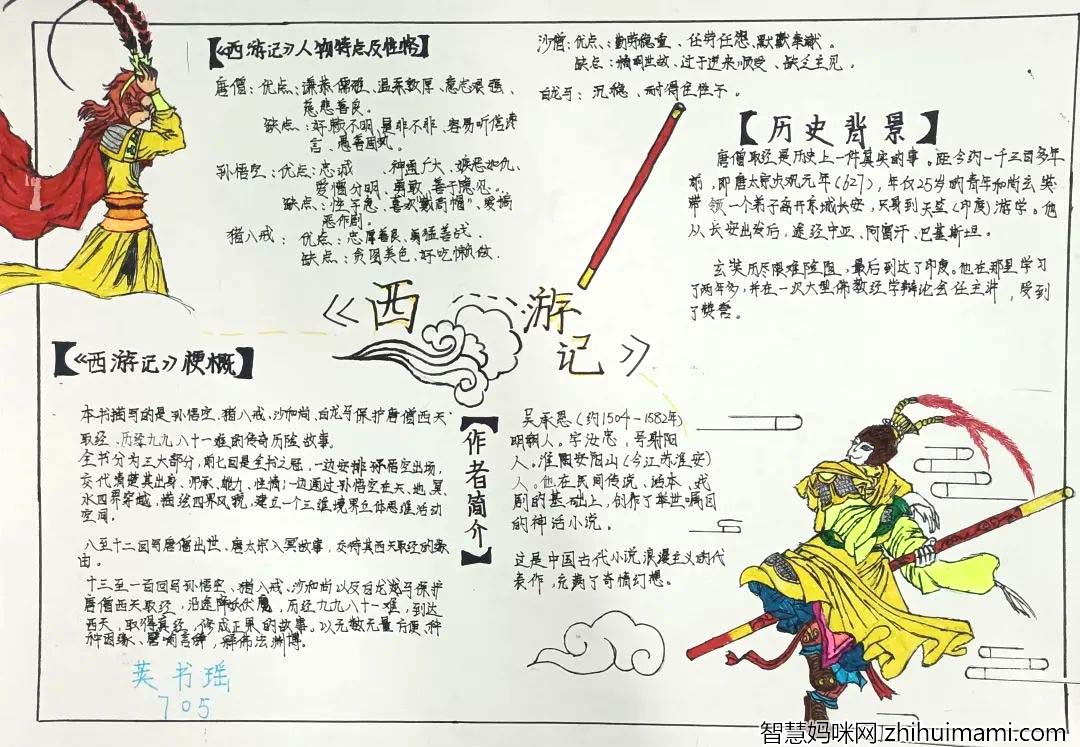 【《西游记》人物特点及性格】
唐僧：优点：谦恭儒雅、温柔敦厚、意志艰强、
慈悲善良。
缺点：奸 不明、是非不非、容易听信谗
言、愚善固执。
孙悟空：优点：忠诚 神通广大、嫉恶如仇、
爱憎分明、勇敢、善于
缺点：性子急、喜欢“戴高帽”、爱搞
恶作剧。
猪八戒： 优点：忠厚善良、勇猛善战、
缺点：贪图美色、好吃懒做、
沙僧：优点：勤劳稳重、任劳任怨、默默奉献。
缺点： 世故、过于逆来顺受、缺乏主见。
白龙马：沉稳、耐得住性子。
【历史背景】
唐僧取经是历史上一件真实的事。距今约一千三百多年
前，即唐太宗贞观元年（627），年仅25岁的青年和尚玄奘
带领一个弟子离开京城长安，只身到天竺（印度）游学。他
从长安出发后，途经中亚、阿富汗、巴基斯坦。
玄奘历尽艰难险阻，最后到达了印度。他在那里学习
了两年多，并在一次大型佛教经学辩论会任主讲，受到
了赞誉。
《西游记》
【《西游记》梗概】
本书描写的是孙悟空、猪八戒、沙和尚、白龙马保护唐僧西天
取经、历经九九八十一难的传奇历险故事。
全书分为三大部分，前七回是全书之冠，一边安排孙悟空出场，
交代清楚其出身、师承、能力、性情；一边通过孙悟空在天、地、冥、
水四界穿越，描绘四界风貌，建立一个三维境界立体思维活动
空间。
八至十二回写唐僧出世、唐太宗入冥故事，交待其西天取经的缘
由。
十三至一百回写孙悟空、猪八戒、沙和尚以及白龙马保护
唐僧西天取经，沿途降妖伏魔，历经九九八十一难，到达
西天，取得真经，修成正果的故事。以无数无量方便，种
种因缘、譬喻言辞，
【作者简介】
吴承恩（约1504-1582年）
明朝人。字汝忠，号射阳
人。淮阴安阳山（今江苏淮安）
人。他在民间传说、话本、戏
剧的基础上，创作了举世瞩目
的神话小说。
这是中国古代小说浪漫主义的代
表作，充满了奇情幻想。
英书瑶
705
智慧妈咪网zhihuimami.com